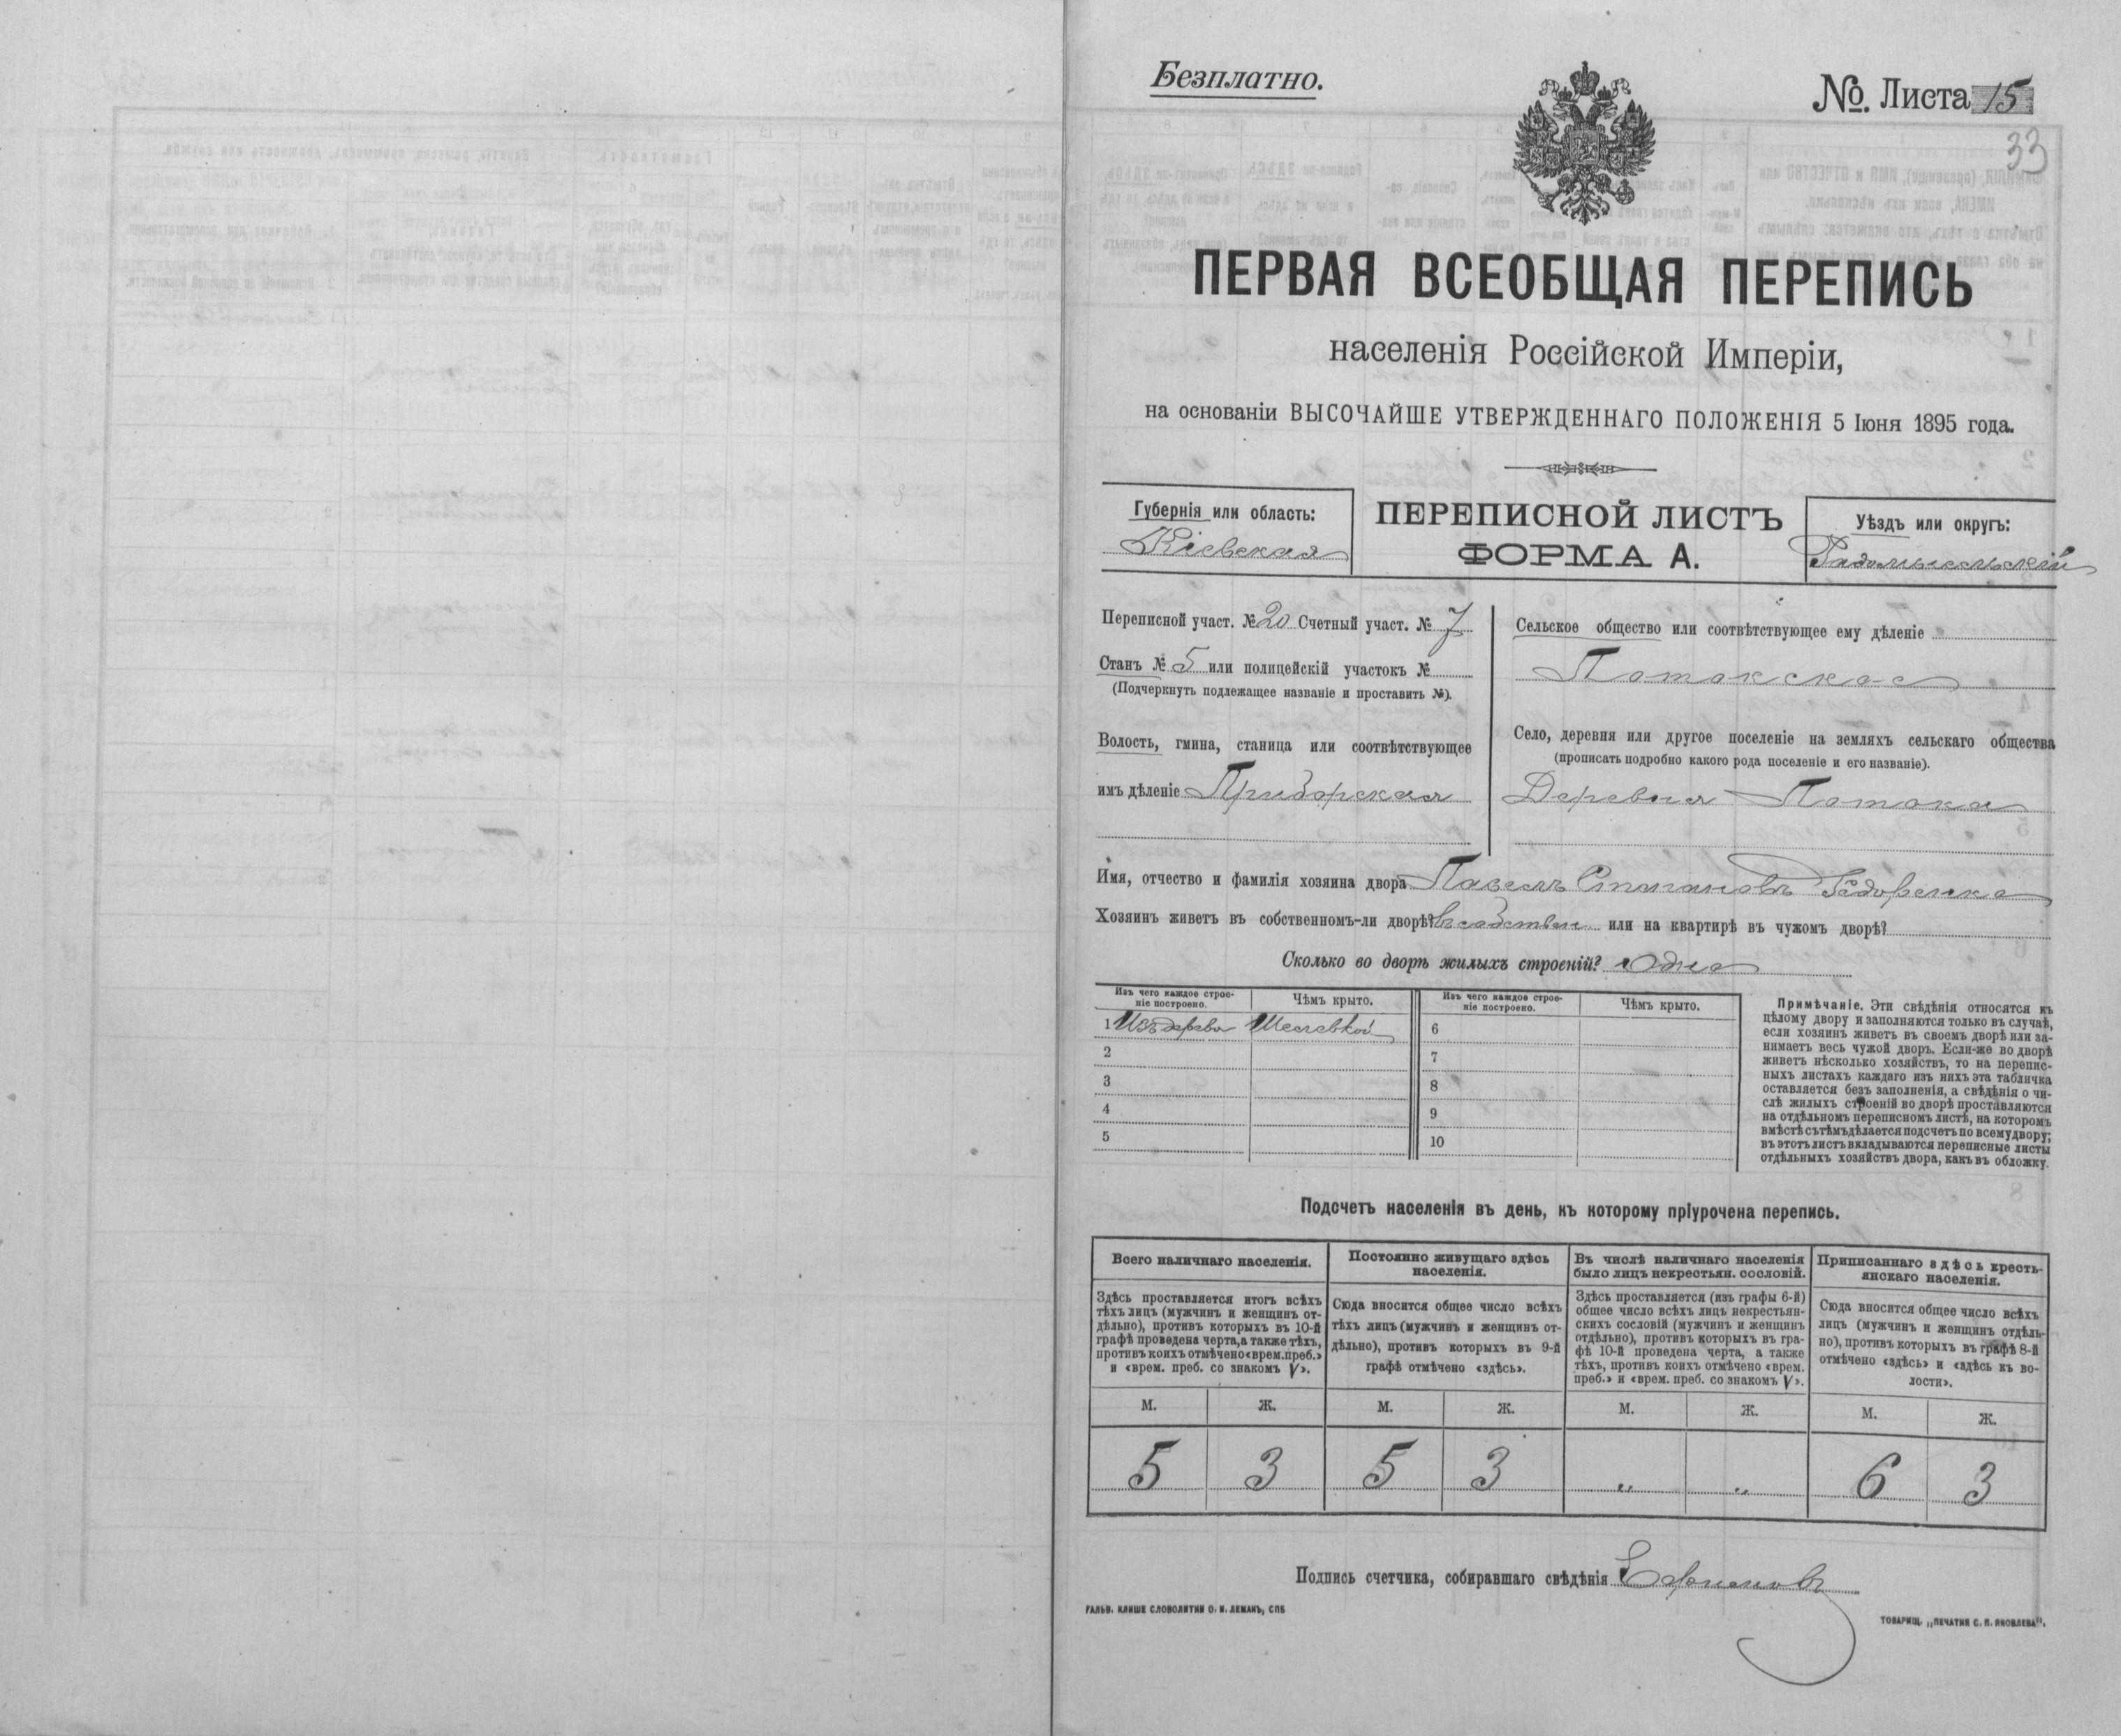 Безплатно.
№. Листа 15
33
ПЕРВАЯ ВСЕОБЩАЯ ПЕРЕПИСЬ
населенія Россійской Имперіи,
на основаніи ВЫСОЧАЙШЕ УТВЕРЖДЕННАГО ПОЛОЖЕНІЯ 5 Іюня 1895 года.
Губернія или область:
Кіевская
ПЕРЕПИСНОЙ ЛИСТЪ
ФОРМА А.
Уѣздъ или округъ:
Радомысльскій
Переписной участ. № 20 Счетный участ. № 7
Станъ № 5 или полицейскій участокъ №
(Подчеркнуть подлежащее названіе и проставить №).
Волость, гмина, станица или соотвѣтствующее
имъ дѣленіе Приборская
Сельское общество или соотвѣтствующее ему дѣленіе
Потокское
Село, деревня или другое поселеніе на земляхъ сельскаго общества
(прописать подробно какого рода поселеніе и его названіе).
Деревня Потоки
Имя, отчество и фамилія хозяина двора Павелъ Степановъ
Хозяинъ живетъ въ собственномъ-ли дворѣ? въ собствен или на квартирѣ въ чужомъ дворѣ?
Сколько во дворѣ жилыхъ строеній? Одно
Изъ чего каждое строе-
ніе построено.
Чѣмъ крыто.
Изъ чего каждое строе-
ніе построено.
Чѣмъ крыто.
1 Изъ дерева
6
2
7
3
8
4
9
5
10
Примѣчаніе. Эти свѣдѣнія относятся къ
цѣлому двору и заполняются только въ случаѣ,
если хозяинъ живетъ въ своемъ дворѣ или за-
нимаетъ весь чужой дворъ. Если-же во дворѣ
живетъ нѣсколько хозяйствъ, то на перепис-
ныхъ листахъ каждаго изъ нихъ эта табличка
оставляется безъ заполненія, а свѣдѣнія о чи-
слѣ жилыхъ строеній во дворѣ проставляются
на отдѣльномъ переписномъ листѣ, на которомъ
вмѣстѣ съ тѣмъ дѣлается подсчетъ по всему двору;
въ этотъ листъ вкладываются переписные листы
отдѣльныхъ хозяйствъ двора, какъ въ обложку.
Подсчетъ населенія въ день, къ которому пріурочена перепись.
Всего наличнаго населенія.
Постоянно живущаго здѣсь
населенія.
Въ числѣ наличнаго населенія
было лицъ некрестьян. сословій.
Приписаннаго здѣсь кресть-
янскаго населенія.
Здѣсь проставляется итогъ всѣхъ
тѣхъ лицъ (мужчинъ и женщинъ от-
дѣльно), противъ которыхъ въ 10-й
графѣ проведена черта, а также тѣхъ,
противъ коихъ отмѣчено «врем. преб.»
и «врем. преб. со знакомъ V».
Сюда вносится общее число всѣхъ
тѣхъ лицъ (мужчинъ и женщинъ от-
дѣльно), противъ которыхъ въ 9-й
графѣ отмѣчено «здѣсь».
Здѣсь проставляется (изъ графы 6-й)
общее число всѣхъ лицъ некрестьян-
скихъ сословій (мужчинъ и женщинъ
отдѣльно), противъ которыхъ въ гра-
фѣ 10-й проведена черта, а также
тѣхъ, противъ коихъ отмѣчено «врем.
преб.» и «врем. преб. со знакомъ V».
Сюда вносится общее число всѣхъ
лицъ (мужчинъ и женщинъ отдѣль-
но), противъ которыхъ въ графѣ 8-й
отмѣчено «здѣсь» и «здѣсь къ во-
лости».
М. Ж. М. Ж. М. Ж. М. Ж.
5 3 5 3 „ „ 6 3
Подпись счетчика, собиравшаго свѣдѣнія
ГАЛЬВ. КЛИШЕ СЛОВОЛИТНИ О. И. ЛЕМАНЪ, СПБ
ТОВАРИЩ. „ПЕЧАТНЯ С. П. ЯКОВЛЕВА".